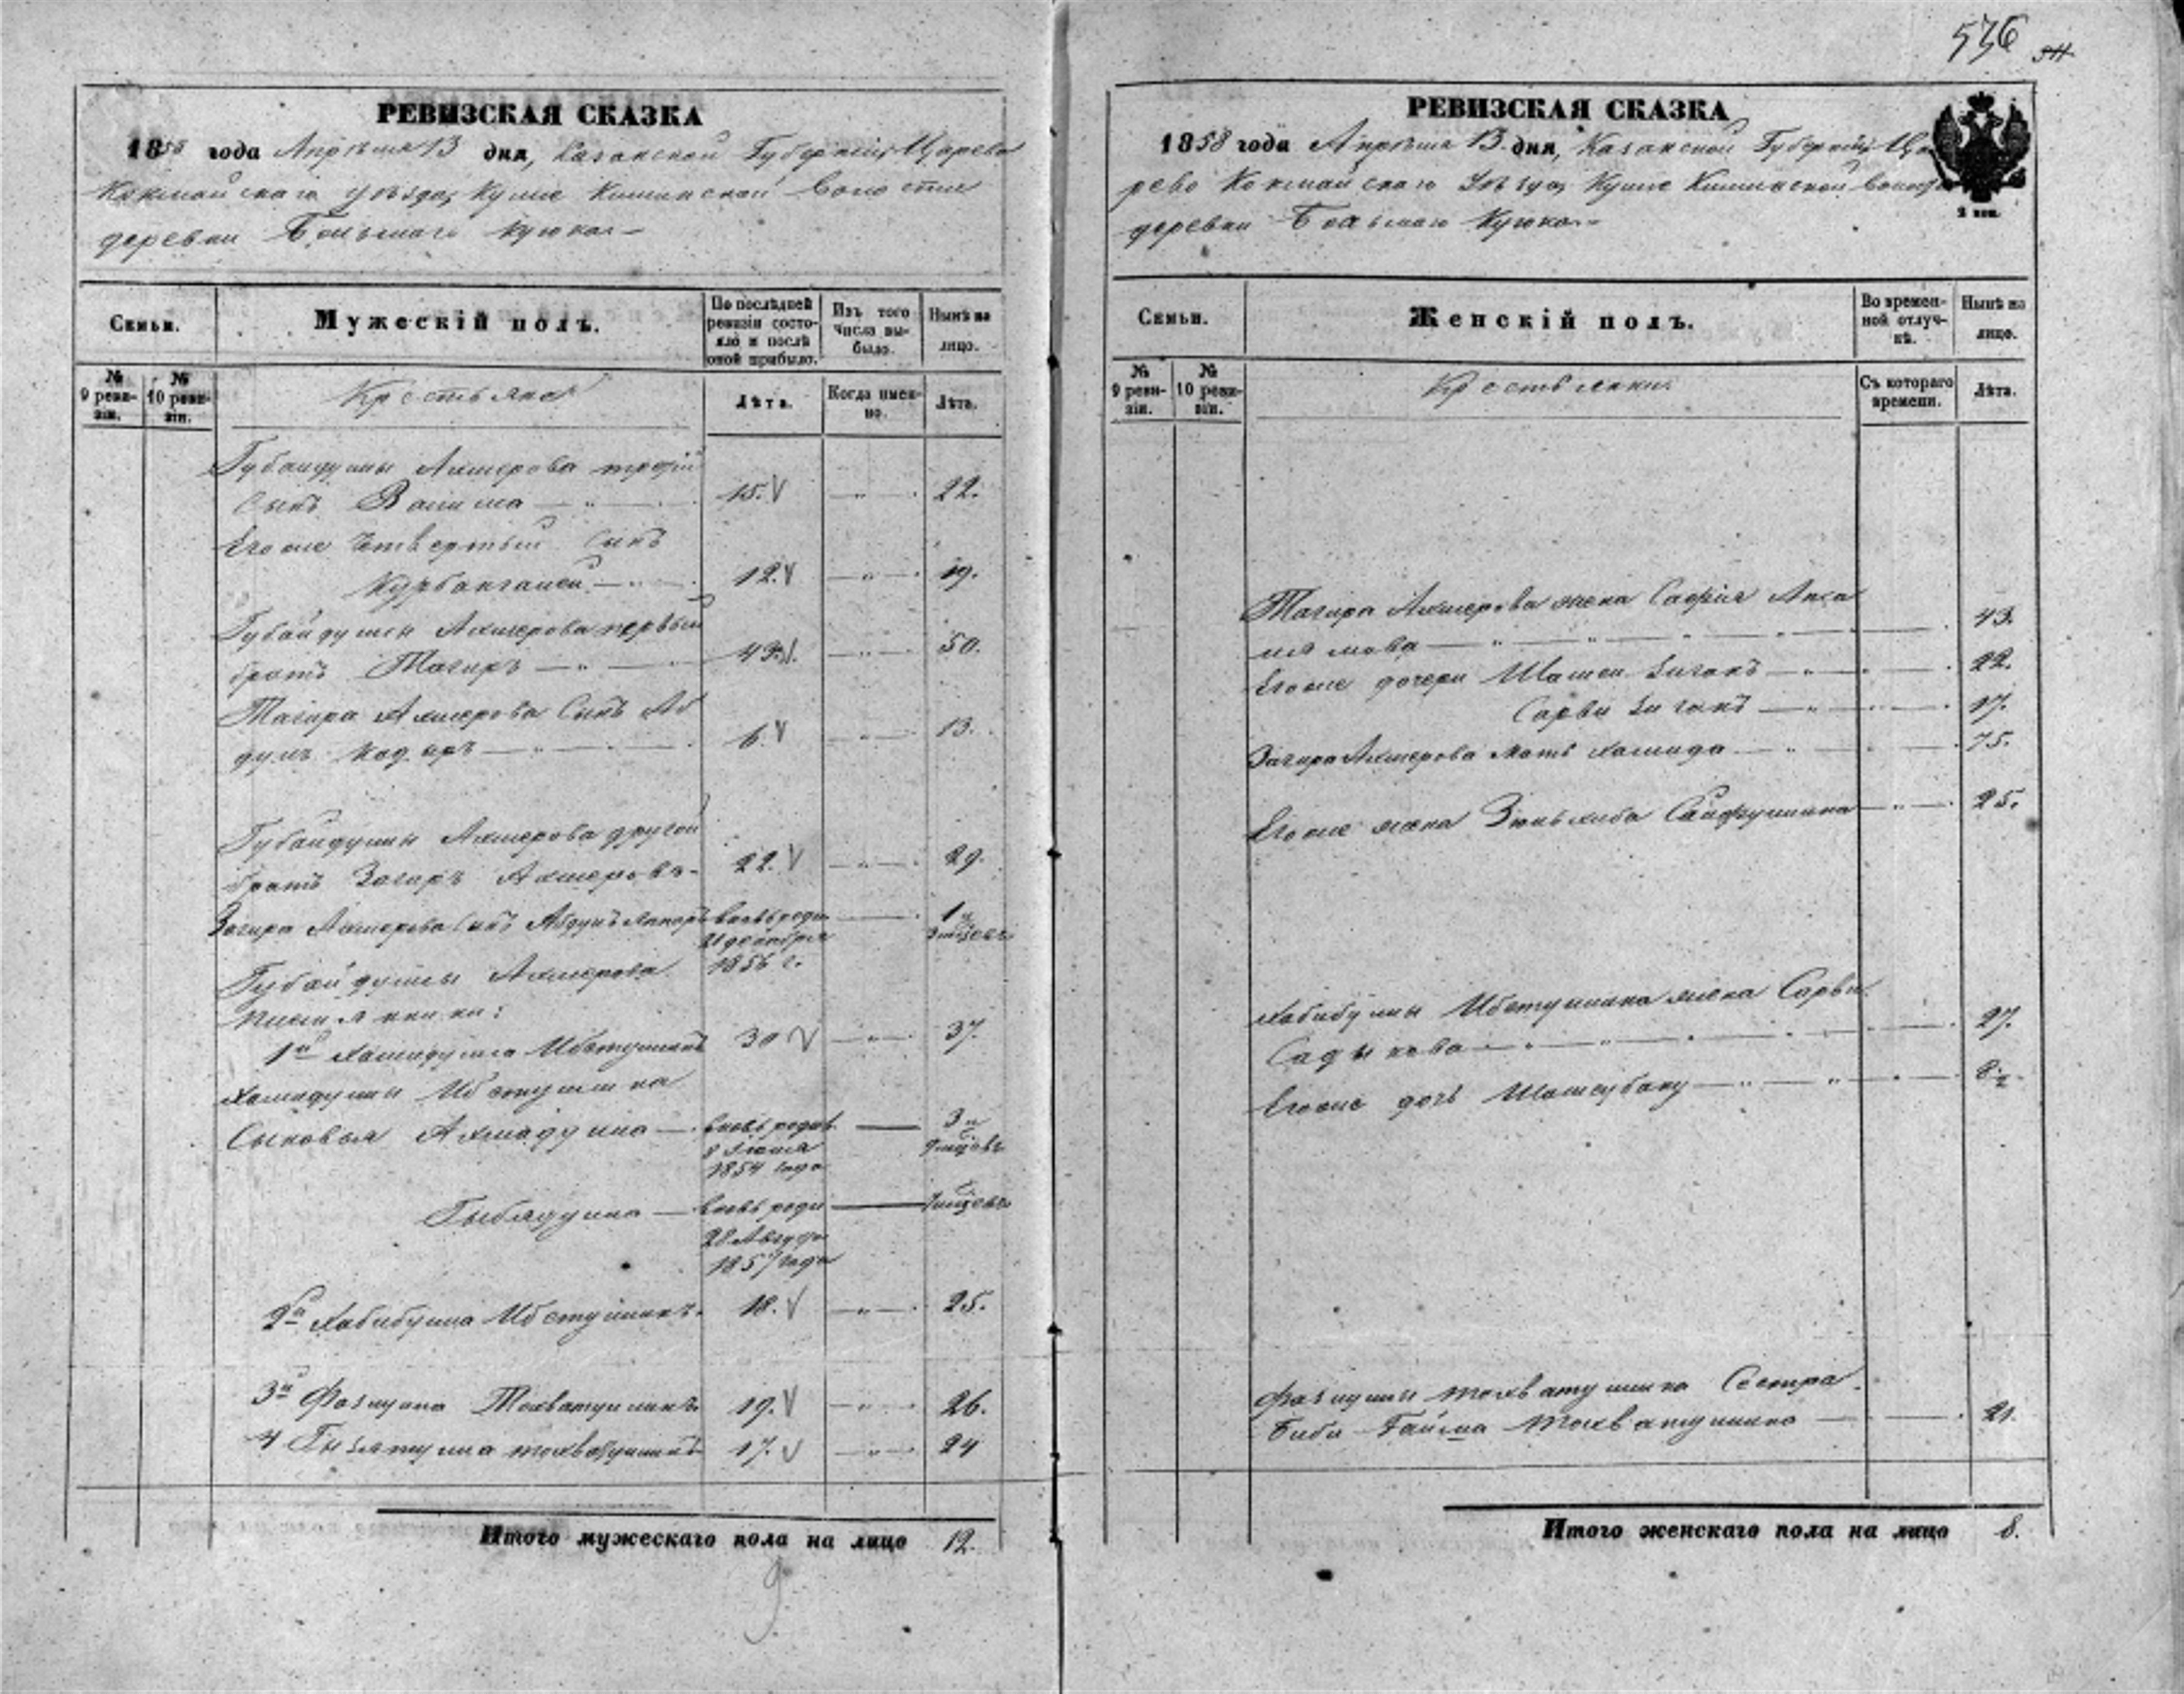 536
РЕВИЗСКАЯ СКАЗКА
1858 года Апрѣля 13 дня, Казанской Губерніи, Царево
Кокшайскаго Уѣзда, Кулле Киминской Волости
деревни Большаго Куюка
Семьи.
Мужескій полъ.
По послѣдней ревизіи состояло и послѣ оной прибыло.
Изъ того числа выбыло.
Нынѣ на лицо.
№ 9 ревизіи.
№ 10 ревизіи.
Крестьяне
Лѣта.
Когда именно.
Лѣта.
Губайдуллы Ахмерова третій
сынъ Валилла 15. 22.
Егоже Четвертый Сынъ
Курбангалей 12. 19.
Губайдуллы Ахмерова первый
братъ Тагиръ 43. 50.
Тагира Ахмерова Сынъ Аб
дулъ Кадыръ 6. 13.
Губайдуллы Ахмерова другой
братъ Загиръ Ахмеровъ 22. 29.
Загира Ахмерова Сынъ Абдулъ вновь роди 1 и
21 декабря 3 мѣсяц
1856 г.
Губайдуллы Ахмерова
племянники:
1й Хамидулла Ибетуллинъ 30 37.
Хамидуллы Ибетуллина
Сыновья Ахмадулла вновь родив 3 и
8 Іюля 9 мѣсяцовъ
1854 года
вновь роди 7 мѣсяцовъ
28 Августа
1857 года
2й Хабибулла Ибетуллинъ. 18. 25.
3й Фазлулла Тохватуллинъ 19. 26.
4 17. 24
Итого мужескаго пола на лицо 12.
9.
РЕВИЗСКАЯ СКАЗКА
1858 года Апрѣля 13. дня, Казанской Губерніи, Ца
рево Кокшайскаго Уѣзда, Кулле Киминской Волости
деревни Большаго Куюка
2 коп.
Семьи.
Женскій полъ.
Во временной отлучкѣ.
Нынѣ на лицо.
№ 9 ревизіи.
№ 10 ревизіи.
Крестьянки
Съ котораго времени.
Лѣта.
Тагира Ахмерова жена Сафія
43.
Егоже дочери 22.
Сарви 17.
Загира Ахмерова Мать Хамида 75.
Егоже жена Сайфуллина 25.
Хабибуллы Ибетуллина жена Сарви
Садыкова 27.
Егоже дочь
Фазлуллы Тохватуллина Сестра
Биби Тохватуллина 21.
Итого женскаго пола на лицо 8.